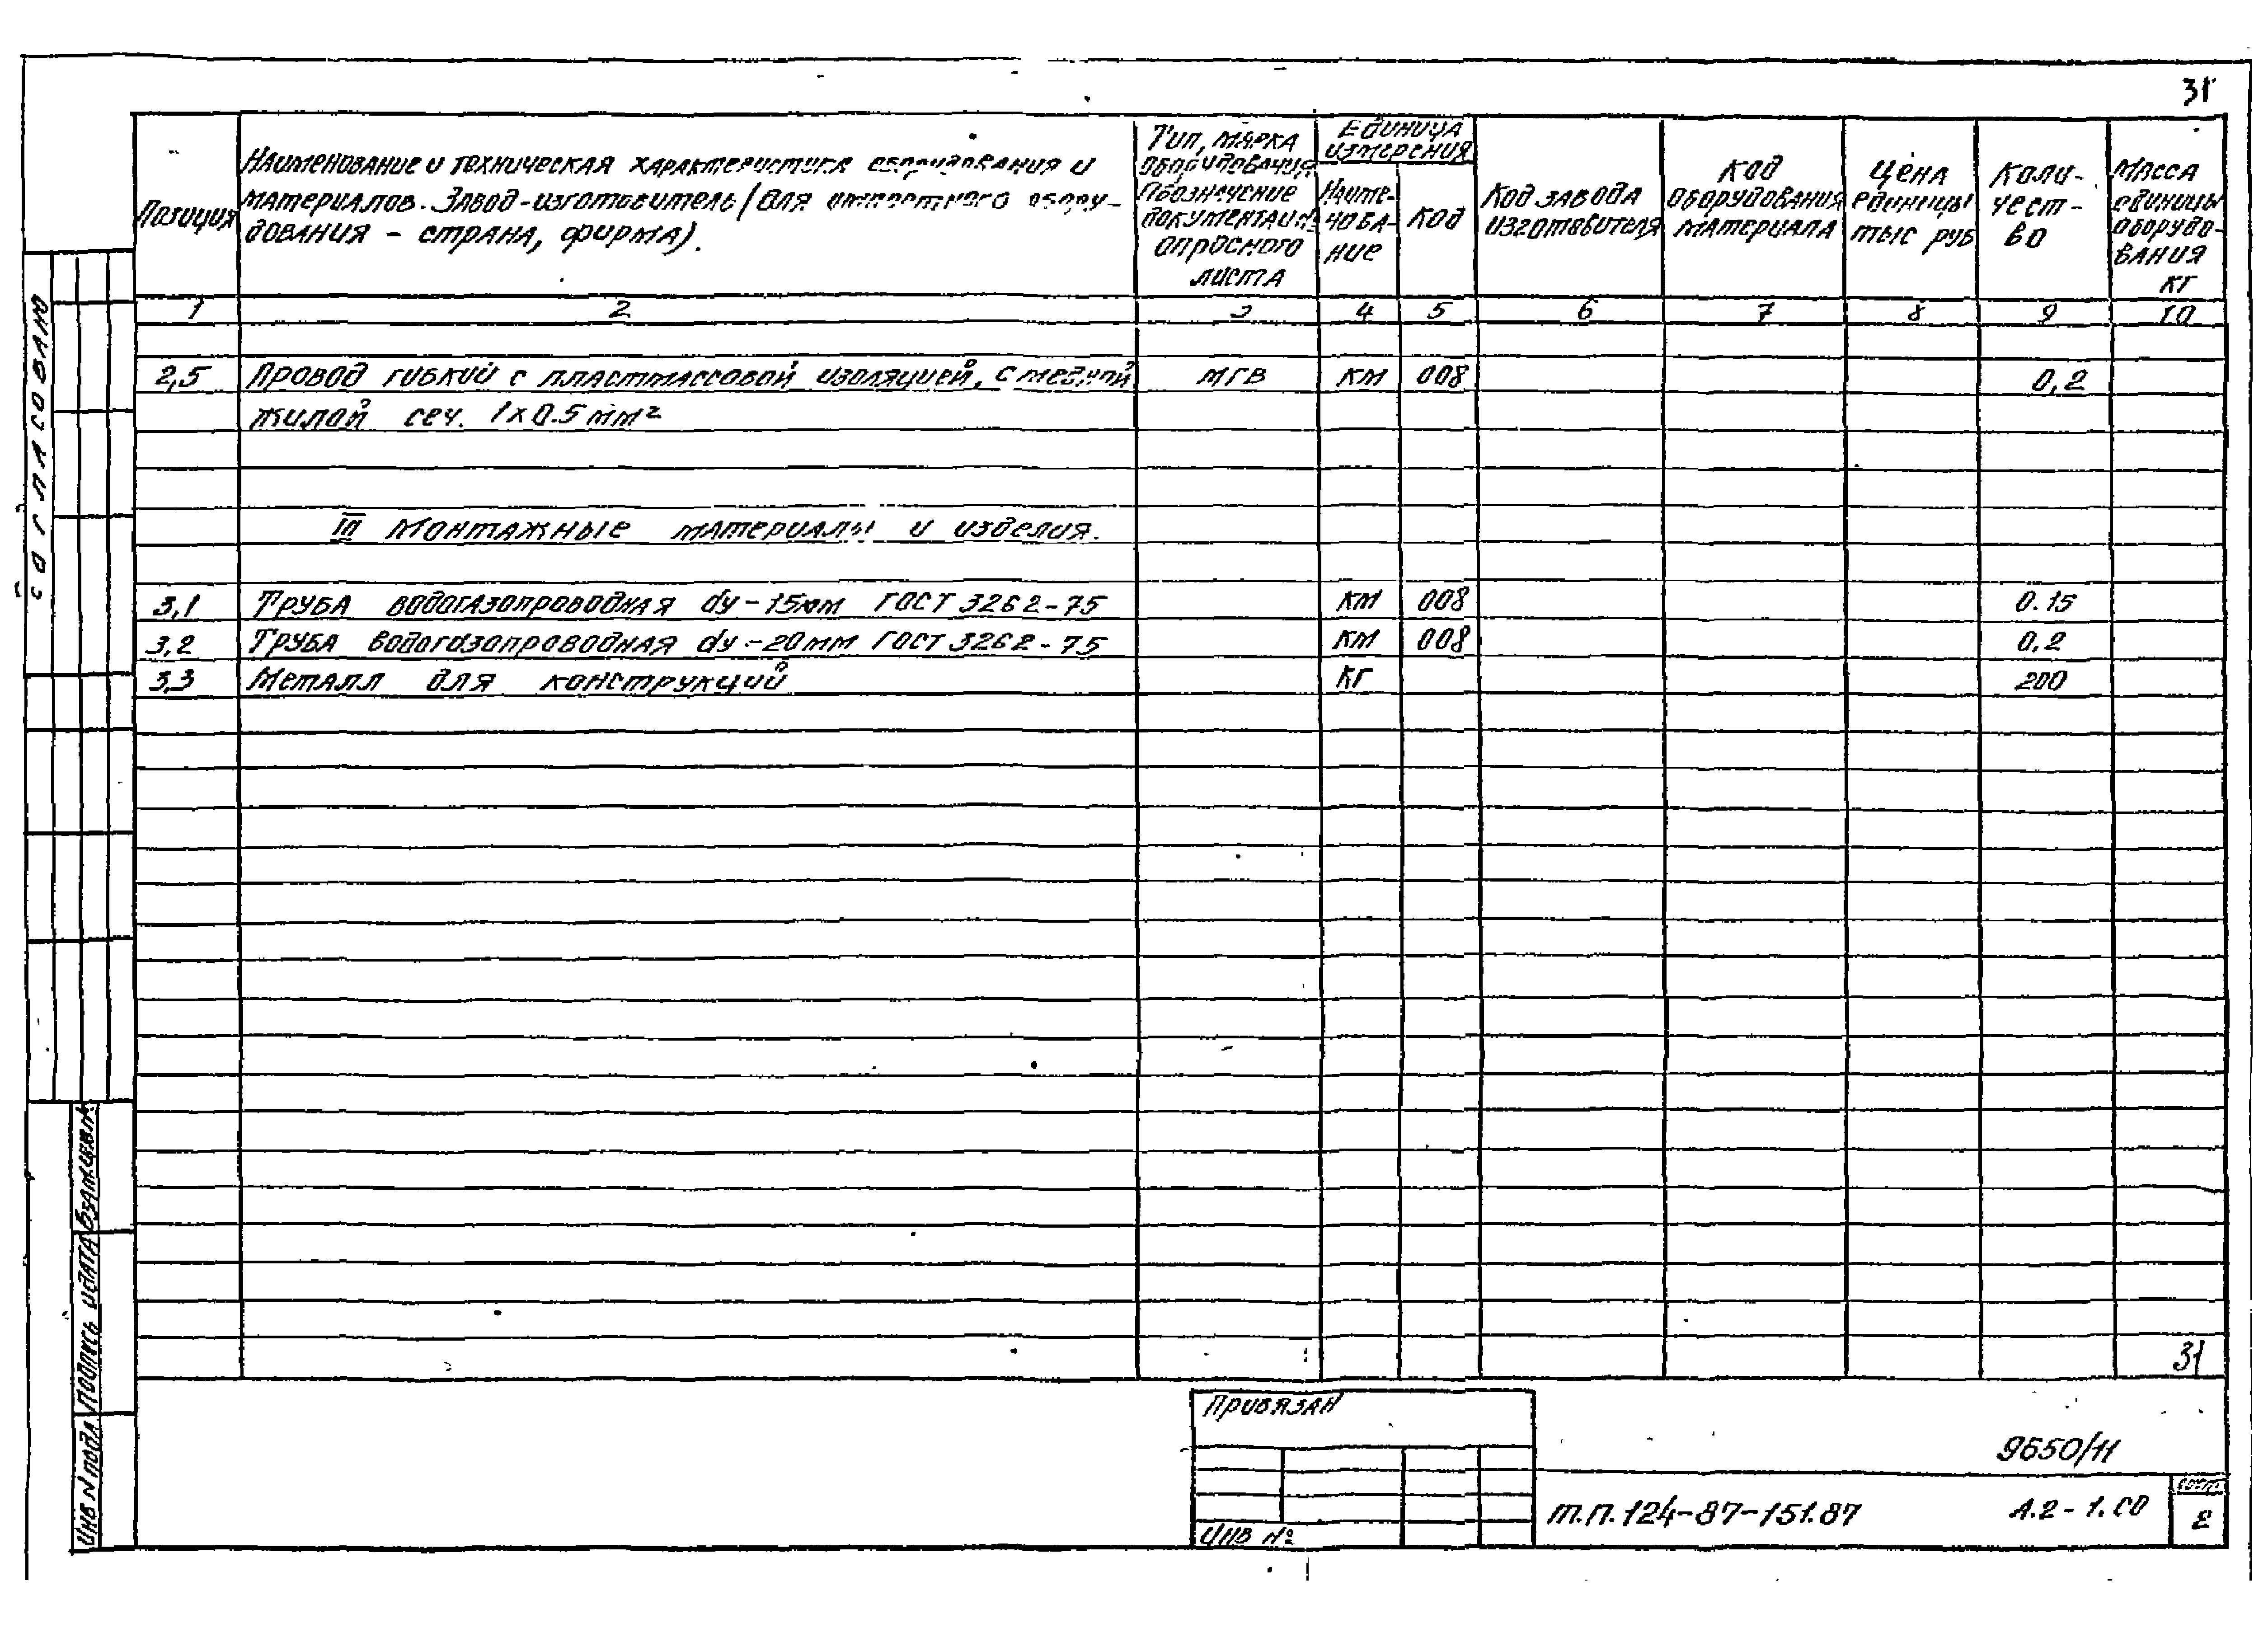 31
Позиция
Наименование и техническая характеристика оборудования и
материалов. Завод-изготовитель (для импортного обору-
дования - страна, фирма).
Тип, марка
оборудования.
Обозначение
документации
опросного
листа
Единица
измерения
Наиме-
нова-
ние
Код
Код завода
изготовителя
Код
оборудования
материала
Цена
единицы
тыс руб
Коли-
чест-
во
Масса
единицы
оборудо-
вания
кг
1 2 3 4 5 6 7 8 9 10
2,5 Провод гибкий с пластмассовой изоляцией, с медной МГВ км 008 0,2
жилой сеч. 1х0.5 мм²
III Монтажные материалы и изделия.
3,1 Труба водогазопроводная dу-15мм ГОСТ 3262-75 км 008 0.15
3,2 Труба водогазопроводная dу-20мм ГОСТ 3262-75 км 008 0,2
3,3 Металл для конструкций кг 200
31
Согласовано
Взам.инв.№
Подпись и дата
Инв N подл
Привязан
Инв №
9650/11
т.п. 124-87-151.87
А.2-1.СО
Лист
2